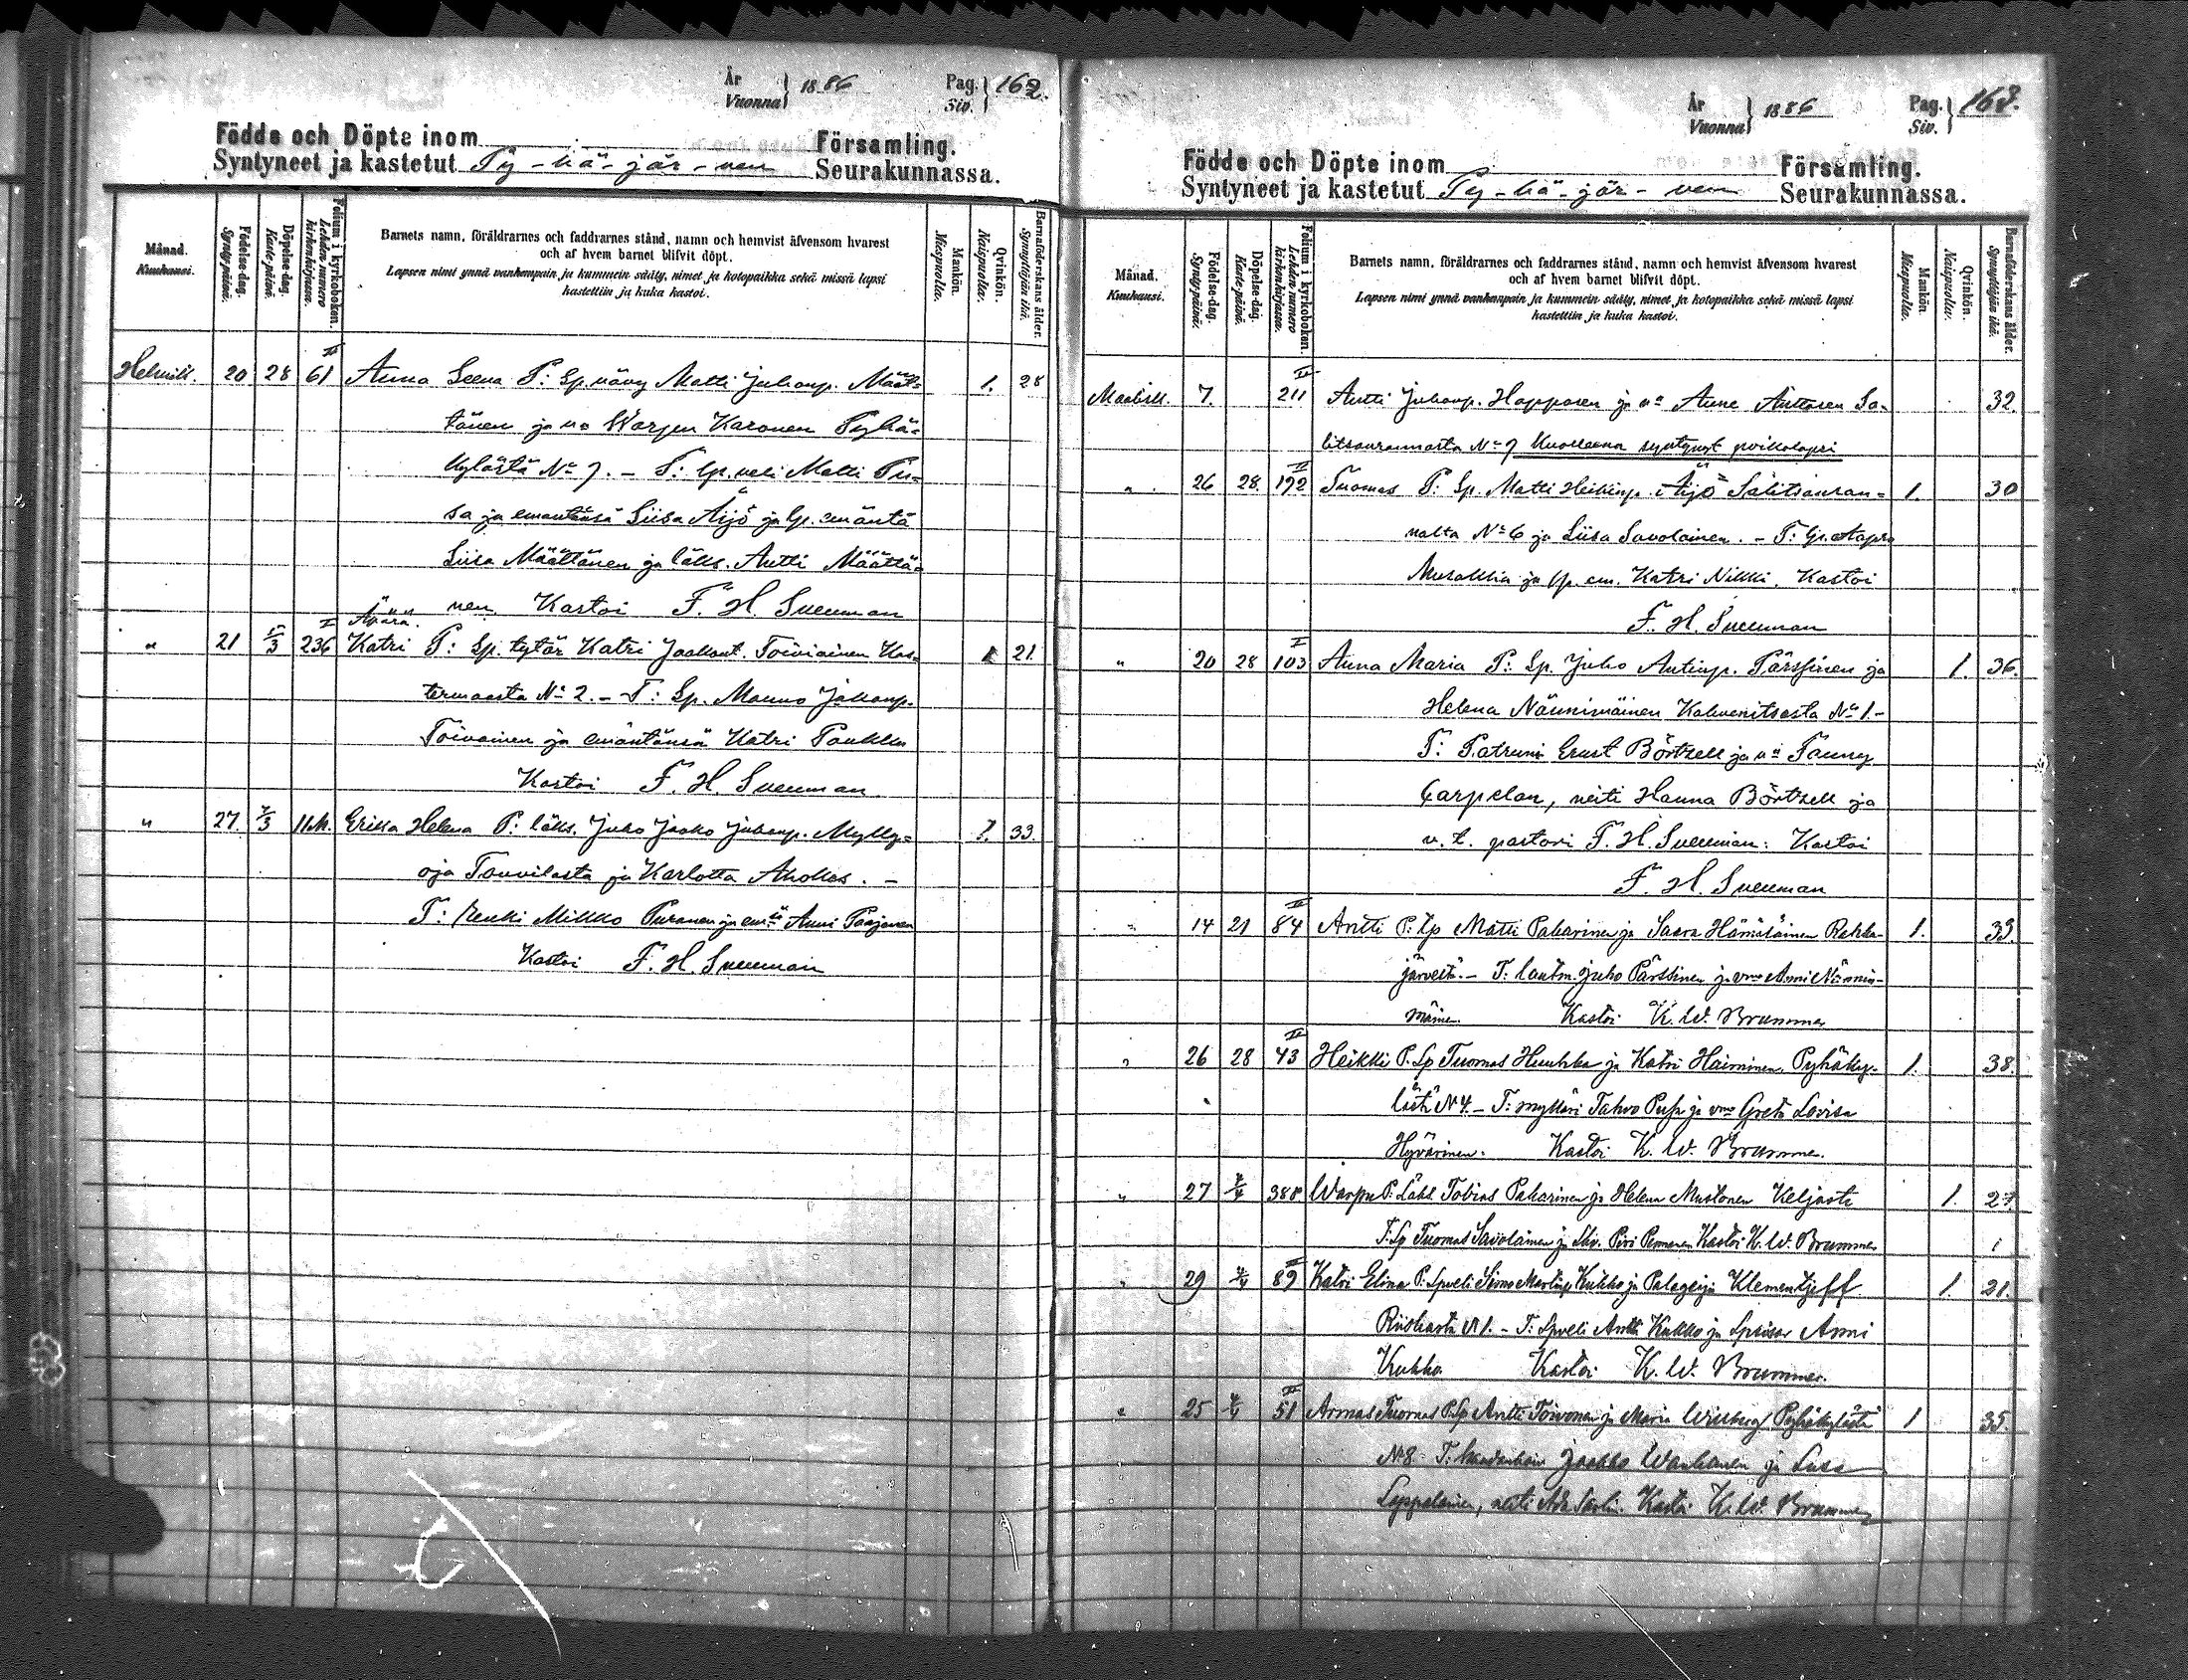 År
Vuonna } 1886 Pag.
Siv. } 162.
Födde och Döpte inom Församling.
Syntyneet ja kastetut Py-hä-jär-ven Seurakunnassa.
Månad.
Kuukausi.
Födelse-dag.
Synty-päivä.
Döpelse-dag.
Kaste-päivä.
Folium i kyrkoboken.
Lehden numero
kirkonkirjassa.
Barnets namn, föräldrarnes och faddrarnes stånd, namn och hemvist äfvensom hvarest
och af hvem barnet blifvit döpt.
Lapsen nimi ynnä vanhempain ja kummein sääty, nimet ja kotopaikka sekä missä lapsi
kastettiin ja kuka kastoi.
Mankön.
Miespuolia.
Qvinkön.
Naispuolia.
Barnaföderskans ålder.
Synnyttäjän ikä.
Helmik. 20 28 II 61 Anna Leena P: Sp. vävy Matti Juhonp. Määt- 1. 28
tänen ja vo Warpu Karonen Pyhä-
kylästä No 7. - T: Sp. veli Matti Pu-
sa ja emäntänsä Liisa Äijö ja Sp. emäntä
Liisa Määttänen ja läks. Antti Määttä-
nen. Kastoi F. H. Sveuman
Äpärä.
" 21 5/3 I 236 Katri P: Sp. tytär Katri Jaakont. Toiviainen Kos- 1 21.
termaasta No 2. - T: Sp. Mauno Jakonp.
Toivainen ja emäntänsä Katri Paukku
Kastoi F. H. Sveuman
" 27 7/3 11.M. Erika Helena P: läks. Juho Jaako Juhonp. Mylly- 1. 33.
oja Touvilasta ja Karlotta Ahokas. -
T: renki Mikko Puranen ja em:tä Anni Paajanen
Kastoi F. H. Sveuman
År
Vuonna } 1886 Pag.
Siv. } 163.
Födde och Döpte inom Församling.
Syntyneet ja kastetut Py-hä-jär-ven Seurakunnassa.
Månad.
Kuukausi.
Födelse-dag.
Synty-päivä.
Döpelse-dag.
Kaste-päivä.
Folium i kyrkoboken.
Lehden numero
kirkonkirjassa.
Barnets namn, föräldrarnes och faddrarnes stånd, namn och hemvist äfvensom hvarest
och af hvem barnet blifvit döpt.
Lapsen nimi ynnä vanhempain ja kummein sääty, nimet ja kotopaikka sekä missä lapsi
kastettiin ja kuka kastoi.
Mankön.
Miespuolia.
Qvinkön.
Naispuolia.
Barnaföderskans ålder.
Synnyttäjän ikä.
Maalisk. 7. II 211 Antti Juhonp. Hopponen ja vo Anne Anttonen Sa- 32.
litsanrannasta No 7 Kuolleena syntynyt poikalapsi
" 26 28. II 192 Tuomas P: Sp. Matti Heikinp. Äijö Salitsanran- 1. 30
nalta No 6 ja Liisa Savolainen. - T: Sp. Aapro
Musakka ja Sp. em. Katri Nikki. Kastoi
F. H. Sveuman
" 20 28 I 103 Anna Maria P: Sp. Juho Antinp. Pärssinen ja 1. 36.
Helena Nännimäinen Kahvenitsasta No 1. -
T: Patruni Ernst Börtzell ja vo Fanny
Carpelan, neiti Hanna Börtzell ja
v. t. pastori F. H. Sveuman: Kastoi
F. H. Sveuman
" 14 21 II 84 Antti P: Sp Matti Pakarinen ja Saara Hämäläinen Rahka- 1. 33.
järveltä. - T: lautm. Juho Pärssinen ja vmo Anni Nännin-
mäinen. Kastoi K. W. Brummer
" 26 28 II 43 Heikki P: Sp Tuomas Huuhka ja Katri Haiminen, Pyhäky- 1. 38.
lästä N 4. - T: mylläri Tahvo Pusa ja vmo Greta Lovisa
Hyvärinen. Kastoi K. W. Brummer.
" 27 4/4 388 Warpu P: Läks Tobias Pakarinen ja Helena Mustonen Keljasta 1. 27.
T: Sp Tuomas Savolainen ja Piri Pennanen Kastoi K. W. Brummer
" 29 4/4 II 89 Katri Elina P: Spveli Simo Martinp Kukko ja Palageija Klementjeff 1. 21.
Riiskasta N 1. - T: Spveli Antti Kukko ja Spsisar Anni
Kukko. Kastoi K. W. Brummer.
" 25 4/4 II 51 Armas Tuomas P: Sp Antti Toivonen ja Maria Pyhäkylästä 1 35.
N 8. T: Jaakko Wanhanen ja Liisa
Leppälainen, neiti Kastoi K. W. Brummer